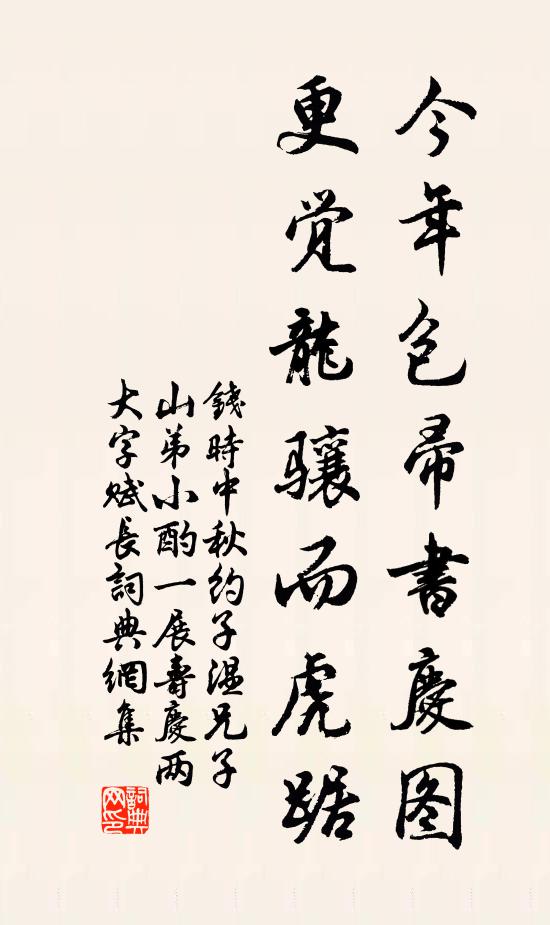 今年色帚書慶图
更觉龍骧而虎踞
錢時中秋约子温兄子
山弟小酌一展壽慶两
大字赋長詞典網集
詞典网印